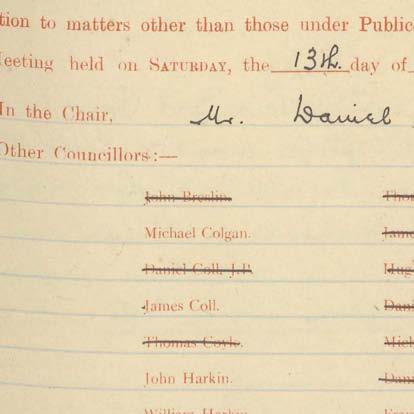 tion to matters other than those under Public
Meeting held on SATURDAY, the 13th. day of
In the Chair, Mr. Daniel
Other Councillors:—
John Breslin. Thom
Michael Colgan. Jame
Daniel Coll, J.P. Hugh
James Coll. Dani
Thomas Coyle. Mich
John Harkin. Dani
William Harkin.